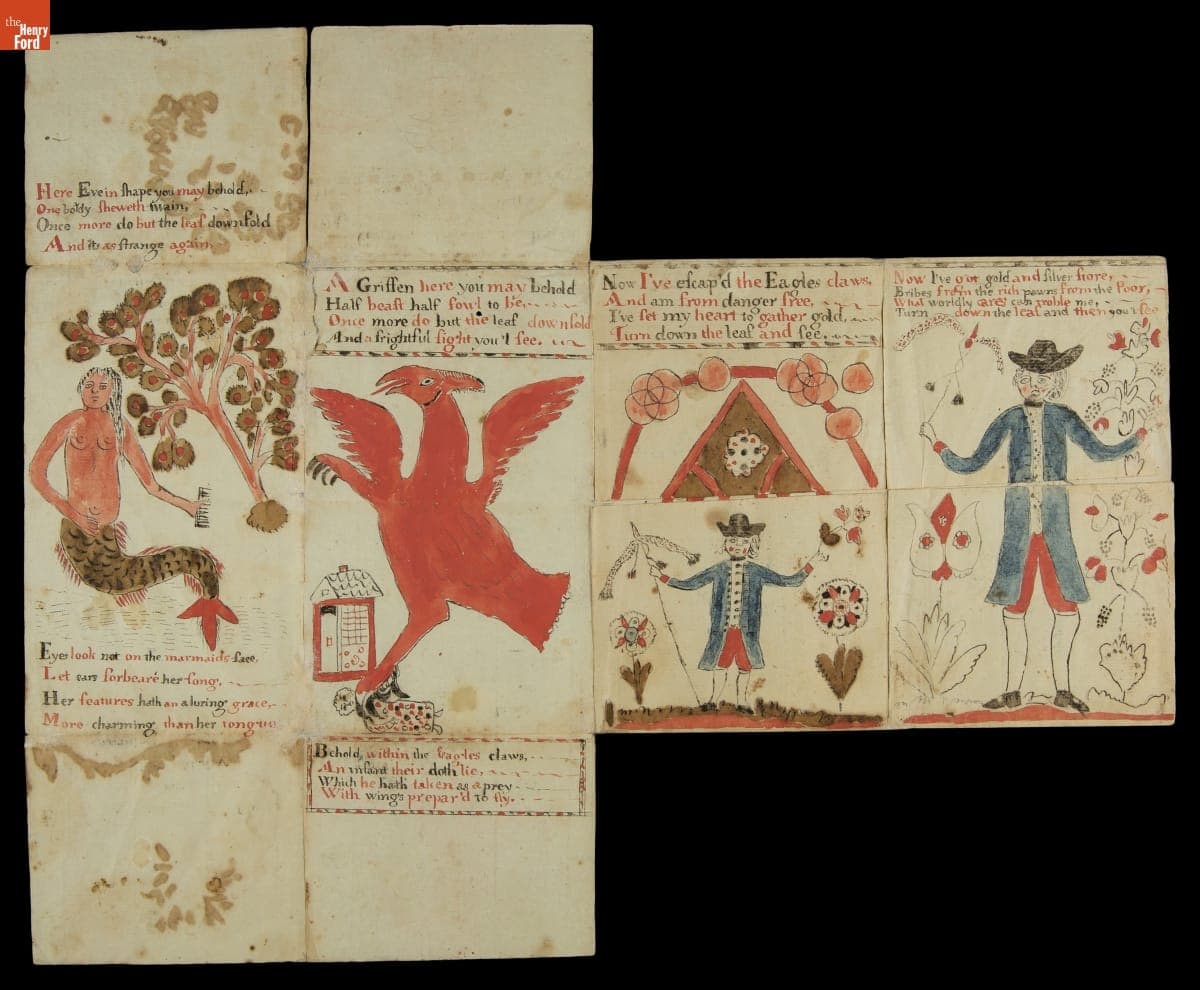 the
Henry
Ford
Here Eve in shape you may behold,
One body sheweth twain,
Once more do but the leaf downfold
And it as strange again.
Eyes look not on the marmaids face,
Let ears forbeare her song,
Her features hath an aluring grace,
More charming than her tongue
A Griffen here you may behold
Half beast half fowl to be,
Once more do but the leaf downfold
And a frightful sight you'l see.
Behold within the Eagles claws,
An infant their doth lie,
Which he hath taken as a prey
With wings prepar'd to fly.
Now I've escap'd the Eagles claws,
And am from danger free,
I've set my heart to gather gold,
Turn down the leaf and see.
Now I've got gold and silver store,
Bribes from the rich pawns from the Poor,
What worldly cares can troble me,
Turn down the leaf and then you'l see